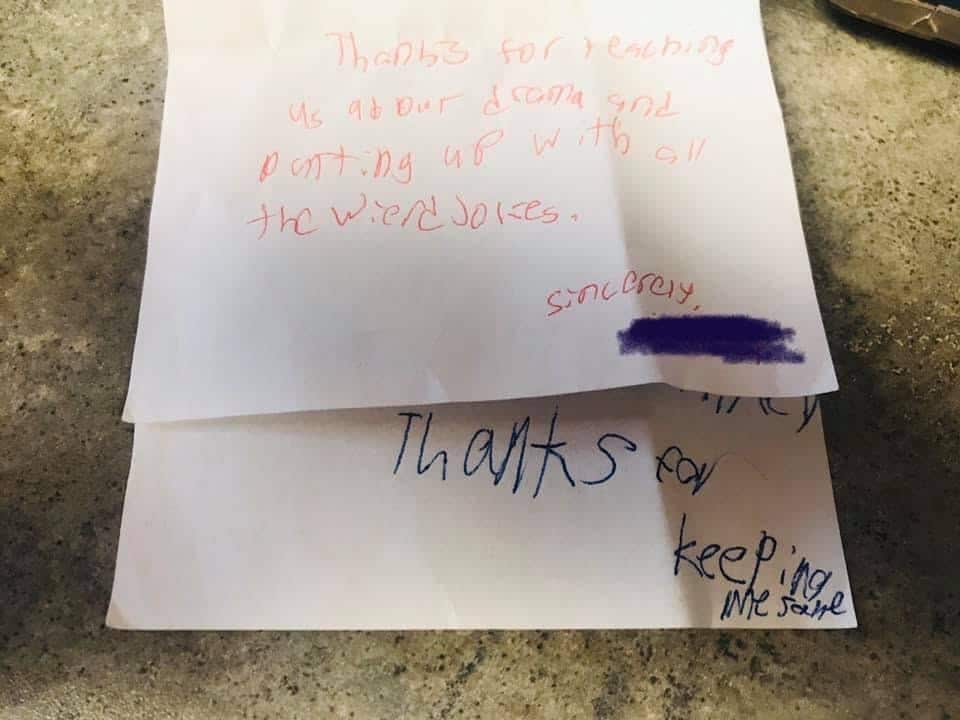 Thanks for teaching
us about drama and
putting up with all
the wierd jokes.
sincerely,
Thanks for
keeping
me sane